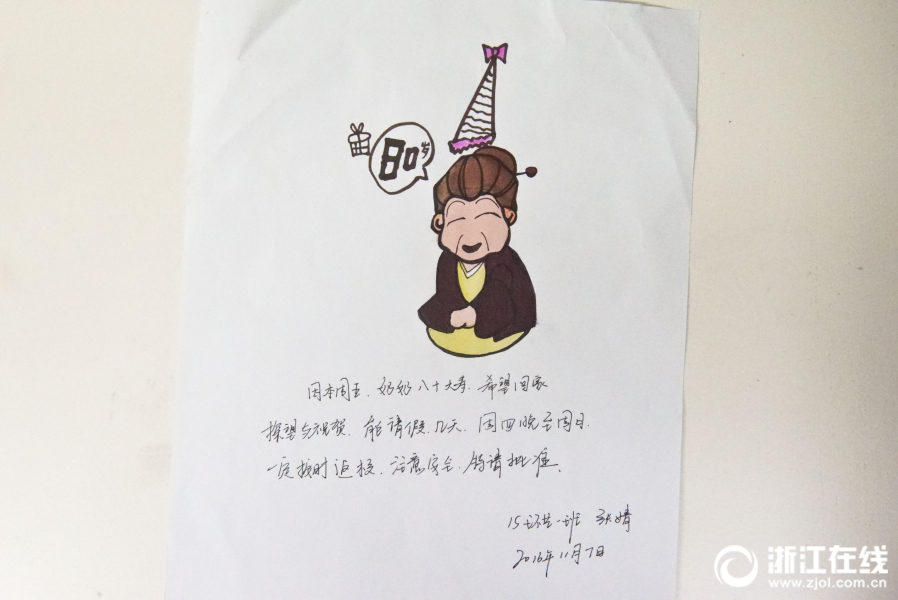 80岁
因本周五,奶奶八十大寿,希望回家
探望与祝贺,能请假几天,周四晚至周日.
一定按时返校,注意安全,特请批准.
15环艺一班 张婧
2016年11月7日
浙江在线
www.zjol.com.cn